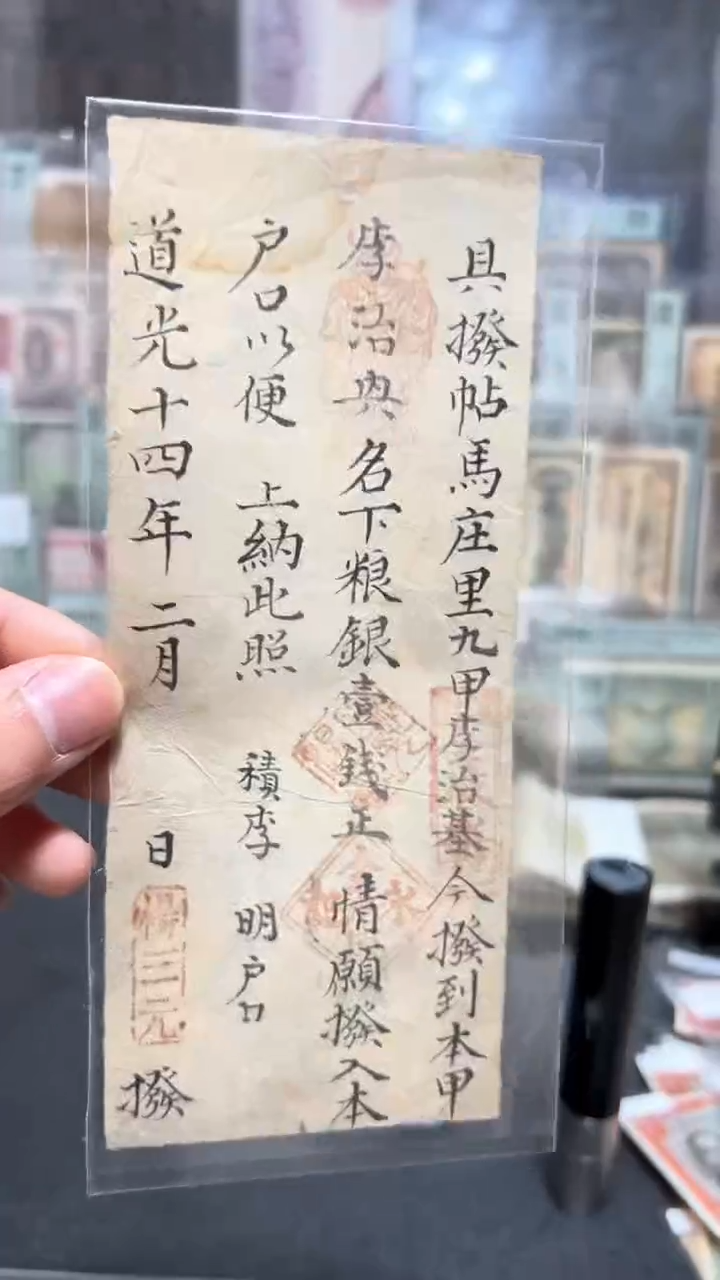 具撥帖馬庄里九甲李治基今撥到本甲
李治典名下粮銀壹錢正情願撥入本
户口以便 上納此照 積李 明户口
道光十四年二月 日 楊三元 撥